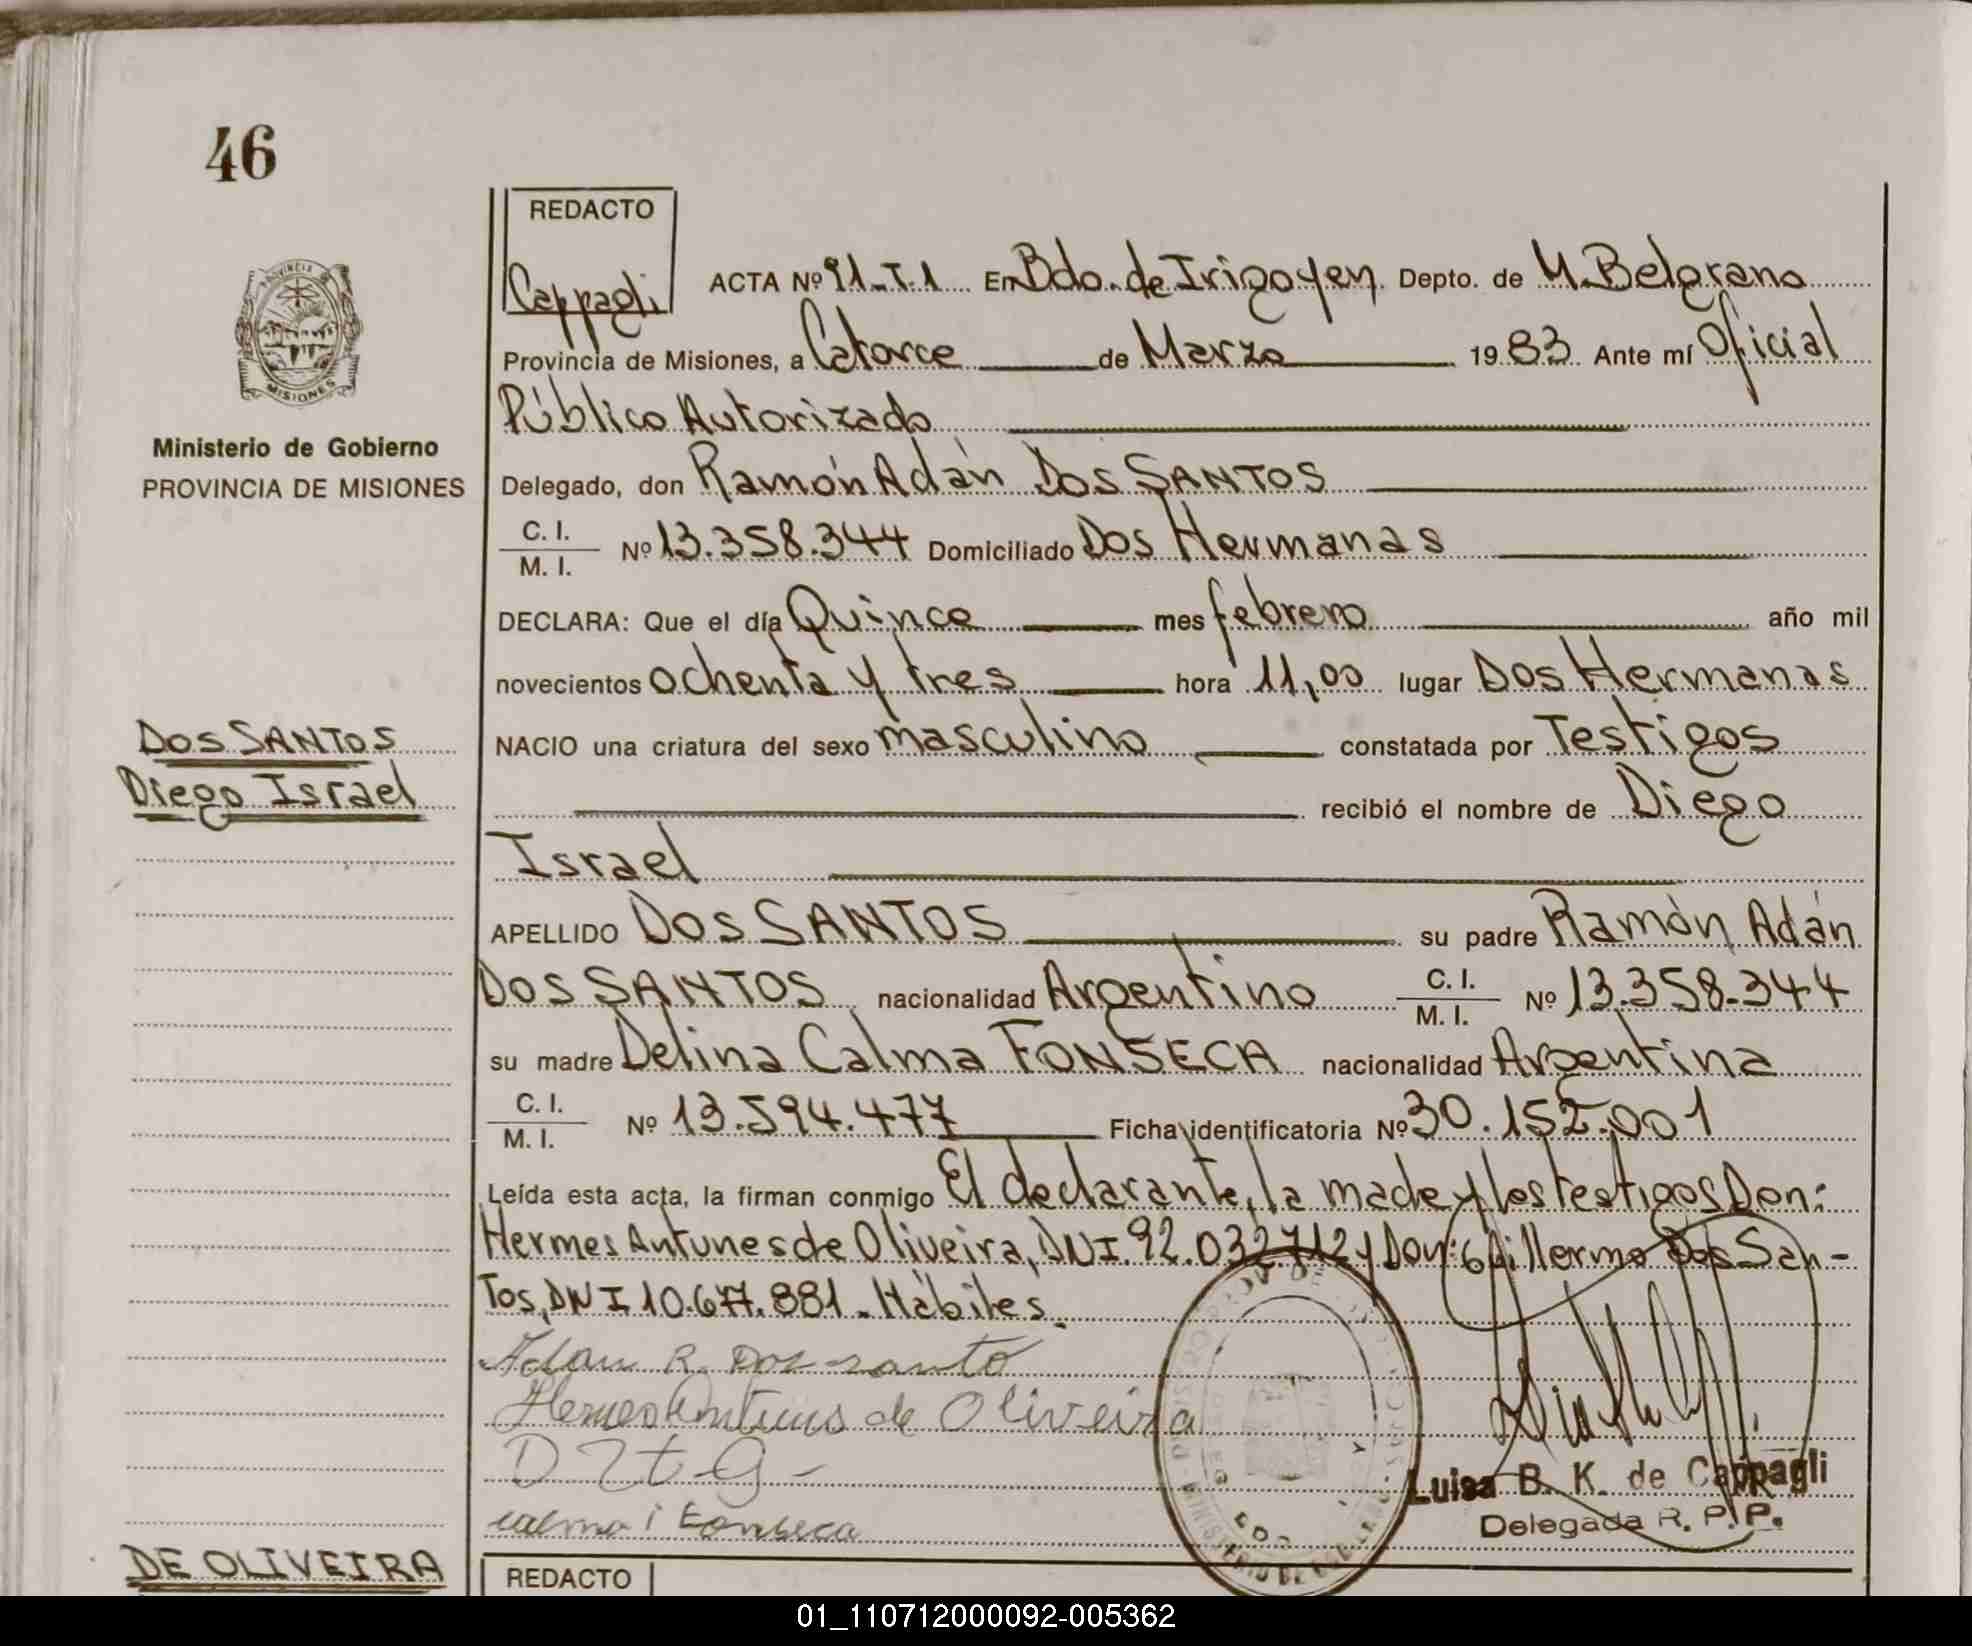 46
REDACTO
Cappagli
ACTA Nº 91-T.1 En Bdo. de Irigoyen Depto. de M. Belgrano
Provincia de Misiones, a Catorce de Marzo 1983 Ante mí Oficial
Público Autorizado
PROVINCIA
MISIONES
Ministerio de Gobierno
PROVINCIA DE MISIONES
Delegado, don Ramón Adán Dos SANTOS
C. I.
M. I. Nº 13.358.344 Domiciliado Dos Hermanas
DECLARA: Que el día Quince mes febrero año mil
novecientos ochenta y tres hora 11,00 lugar Dos Hermanas
Dos SANTOS
Diego Israel
NACIO una criatura del sexo masculino constatada por Testigos
recibió el nombre de Diego
Israel
APELLIDO Dos SANTOS su padre Ramón Adán
Dos SANTOS nacionalidad Argentino C. I. M. I. Nº 13.358.344
su madre Delina Calma FONSECA nacionalidad Argentina
C. I.
M. I. Nº 13.594.477 Ficha identificatoria Nº 30.152.001
Leída esta acta, la firman conmigo El declarante, la made y los testigos Don:
Hermes Antunes de Oliveira, DNI. 92.032.712 y Don: Guillermo Dos San-
Tos, DNI 10.677.881. Hábiles.
Adan R. Dos santo
Hermes Antunes de Oliveira
Calma i Fonseca
Luisa B. K. de Cappagli
Delegada R. P. P.
DE OLIVEIRA
REDACTO
01_110712000092-005362